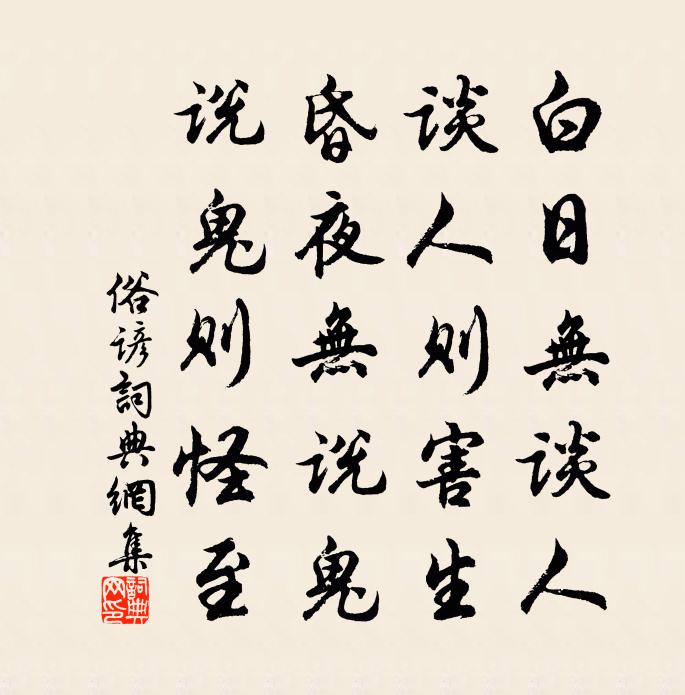 白日無谈人
谈人则害生
昏夜無说鬼
说鬼则怪至
俗谚詞典網集